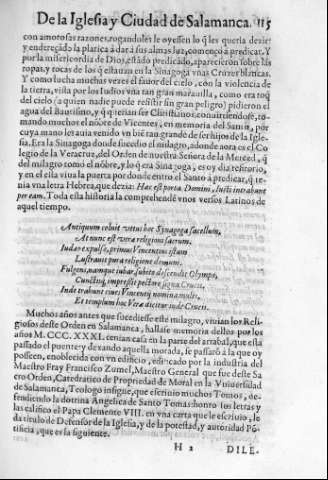 De la Iglesia y Ciudad de Salamanca. 115
con amorosas razones rogandoles le oyessen lo q̃ les queria dezir:
y endereçado la platica à dar à sus almas luz, començò à predicar. Y
por la misericordia de Dios, estãdo predicado, aparecieron sobre las
ropas, y tocas de los q̃ estauan en la Sinagoga vnas Cruzes blancas.
Y como lucha muchas vezes el fauor del cielo, con la violencia de
la tierra, vista por los Iudios vna tan gran marauilla, como era toq̃
del cielo (a quien nadie puede resistir sin gran peligro) pidieron el
agua del Bautismo, y q̃ querian ser Christianos conuirtiendose, to-
mando muchos el nõbre de Vicentes, en memoria del Santo, por
cuya mano les auia venido vn biẽ tan grande de ser hijos de la Igle-
sia. Era la Sinagoga donde sucedio el milagro, adonde aora es el Co
legio de la Veracruz, del Orden de nuestra Señora de la Merced, q̃
del milagro tomò el nõbre, y lo q̃ era Sinagoga, es oy dia refitorio,
y en el està viua la puerta por donde entro el Santo à predicar, q̃ te-
nia vna letra Hebrea, que dezia: Hæc est porta Domini, iusti intrabunt
per eam. Toda esta historia la comprehendẽ vnos versos Latinos de
aquel tiempo.
Antiquum coluit vetus hoc Synagoga sacellum,
At nunc est vera religionis sacrum.
Iudæo expulso, primus Vincentius istam
Lustrauit pura religione domum.
Fulgens, namque iubar, subito descendit Olympo,
Cunctisq, impressit pectore signa Crucis.
Inde trahunt ciues Vincentij nomina multi,
Et templum hoc Vera dicitur inde Crucis.
Muchos años antes que sucediesse este milagro, viuian los Reli-
giosos deste Orden en Salamanca, hallase memoria dellos por los
años M. CCC. XXXI. tenian casa en la parte del arrabal, que està
passado el puente y dexando aquella morada, se passarõ à la que oy
posseen, enoblecida con vn edificio, edificado por la industria del
Maestro Fray Francisco Zumel, Maestro General que fue deste Sa
cro Orden, Catedratico de Propiedad de Moral en la Vniuersidad
de Salamanca, Teologo insigne, que escriuio muchos Tomos, de-
fendiendo la dotrina Angelica de Santo Tomas: honrò sus letras y
las calificò el Papa Clemente VIII. en vna carta que le escriuio, le
da titulo de Defensor de la Iglesia, y de la potestad, y autoridad Põ-
tificia, que es la siguiente.
H 2 DILE.